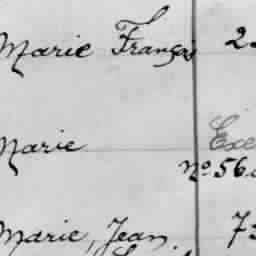 Marie Françis 2
Marie Exe
No. 56
Marie, Jean. 73